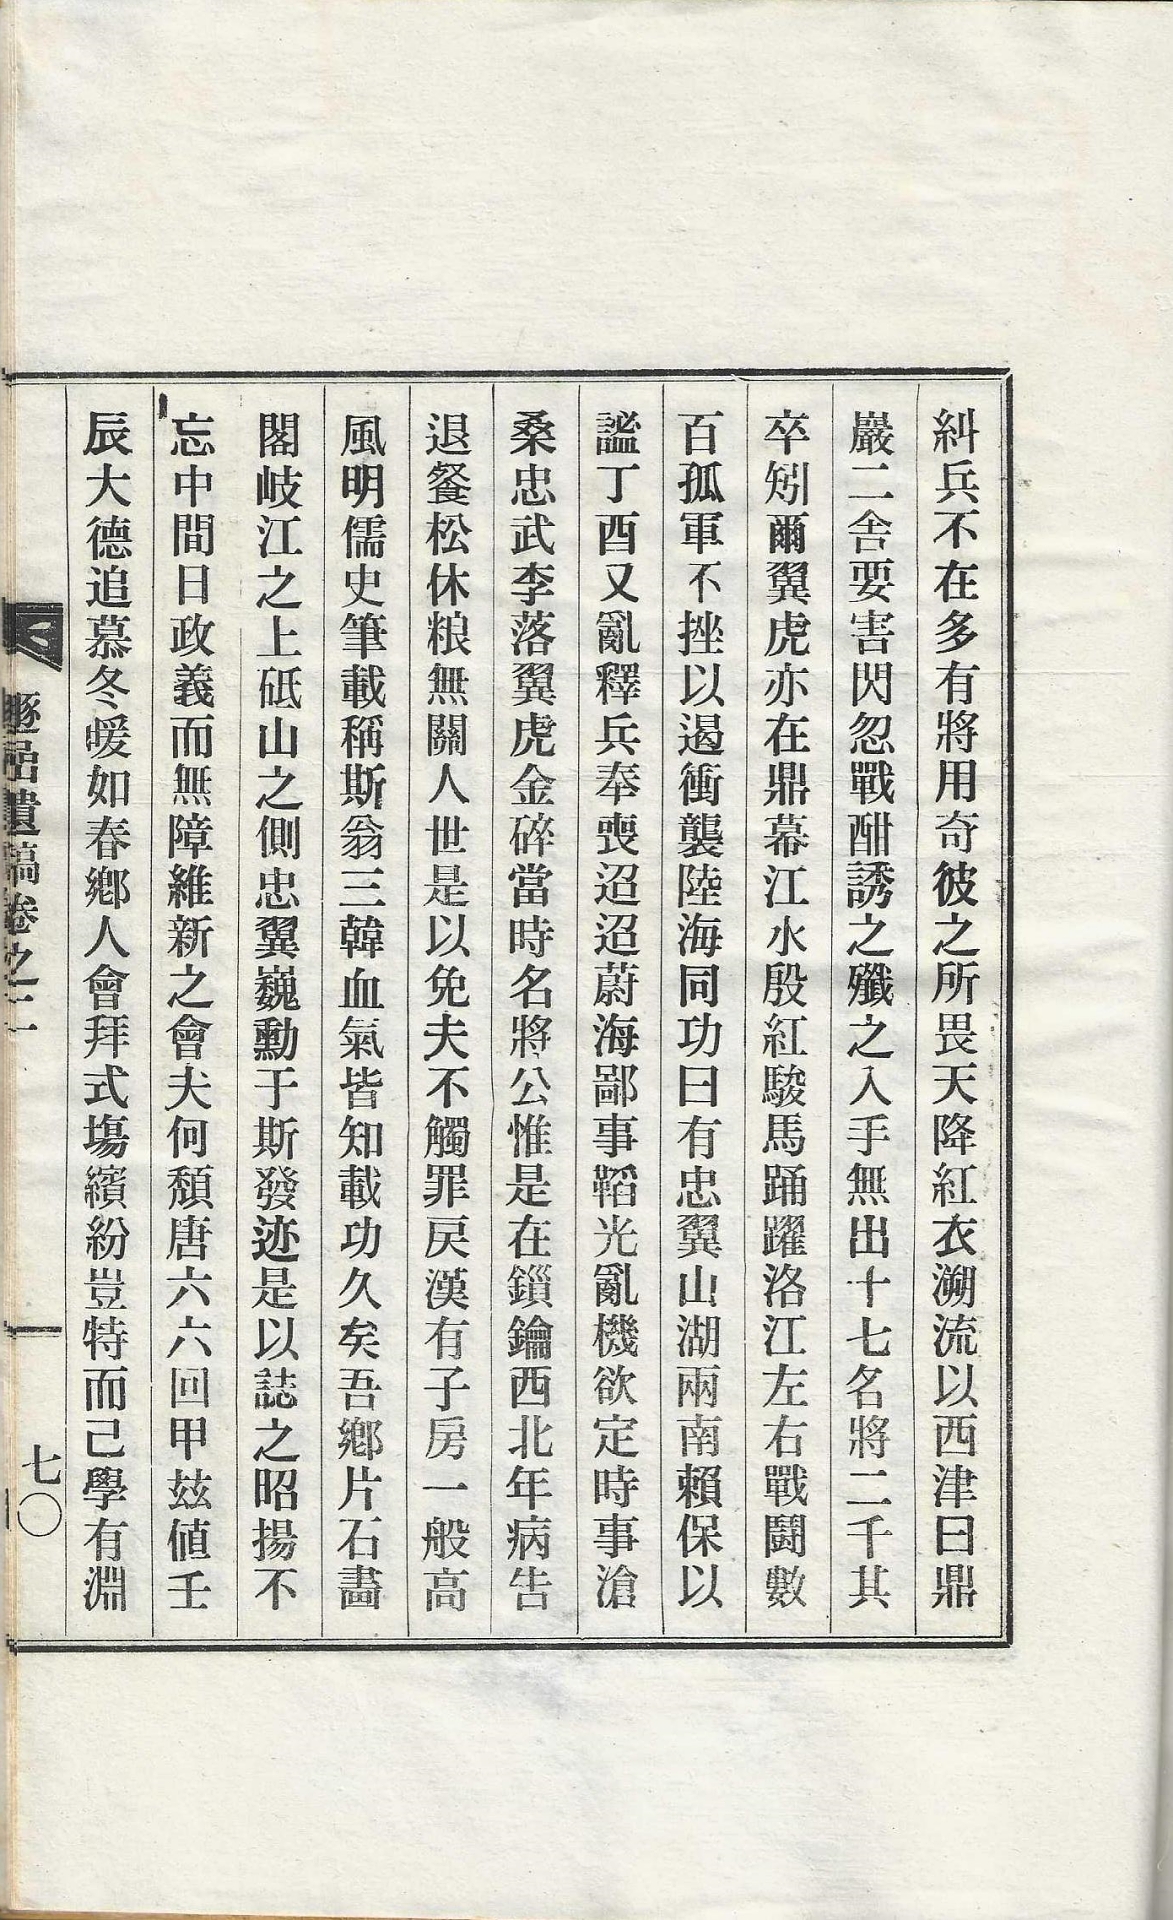 糾兵不在多有將用奇彼之所畏天降紅衣溯流以西津曰鼎
嚴二舍要害閃忽戰酣誘之殲之入手無出十七名將二千其
卒矧爾翼虎亦在鼎幕江水殷紅駿馬踊躍洛江左右戰鬪數
百孤軍不挫以遏衝襲陸海同功曰有忠翼山湖兩南賴保以
謐丁酉又亂釋兵奉喪迢迢蔚海鄙事韜光亂機欲定時事滄
桑忠武李落翼虎金碎當時名將公惟是在鎻鑰西北年病告
退餐松休粮無關人世是以免夫不觸罪戾漢有子房一般高
風明儒史筆載稱斯翁三韓血氣皆知載功久矣吾鄉片石畵
閣岐江之上砥山之側忠翼巍勳于斯發迹是以誌之昭揚不
忘中間日政義而無障維新之會夫何頹唐六六回甲玆値壬
辰大德追慕冬暖如春鄉人會拜式塲繽紛豈特而己學有淵
遺稿卷之二
七〇